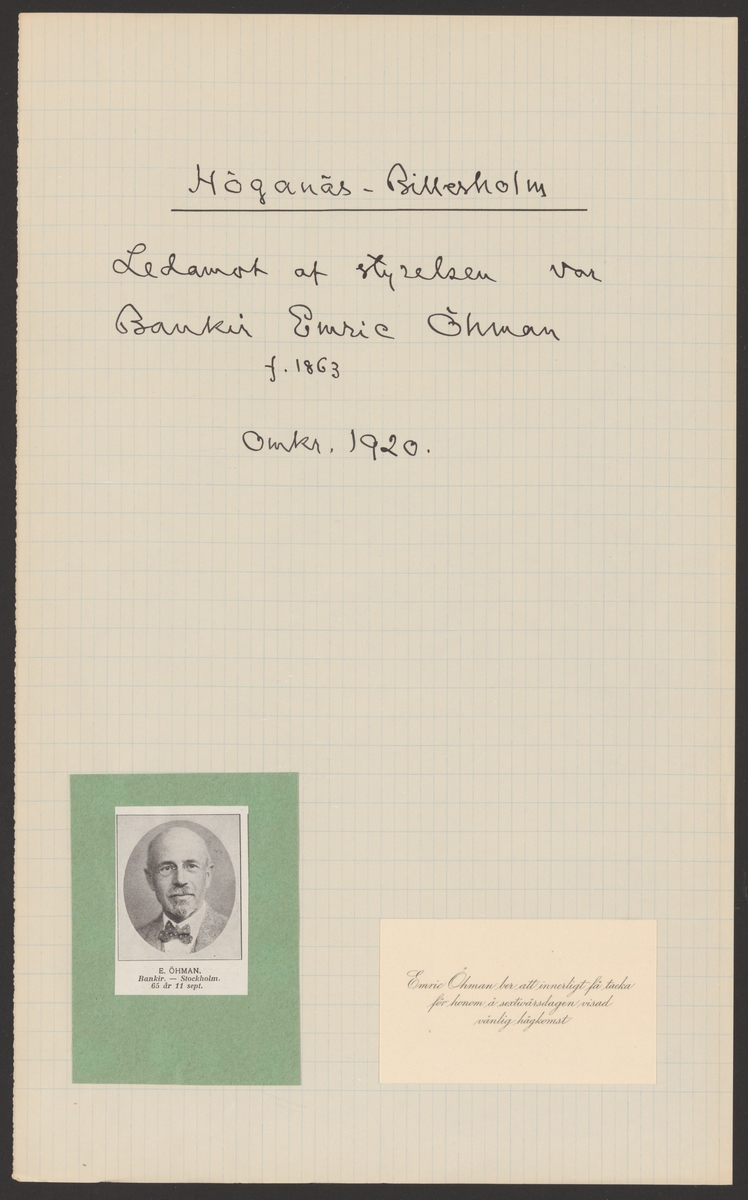 Höganäs - Billesholm
Ledamot af styrelsen var
Bankir Emric Öhman
f. 1863
Omkr. 1920.
E. ÖHMAN.
Bankir. — Stockholm.
65 år 11 sept.
Emric Öhman ber att innerligt få tacka
för honom å sextioårsdagen visad
vänlig hågkomst